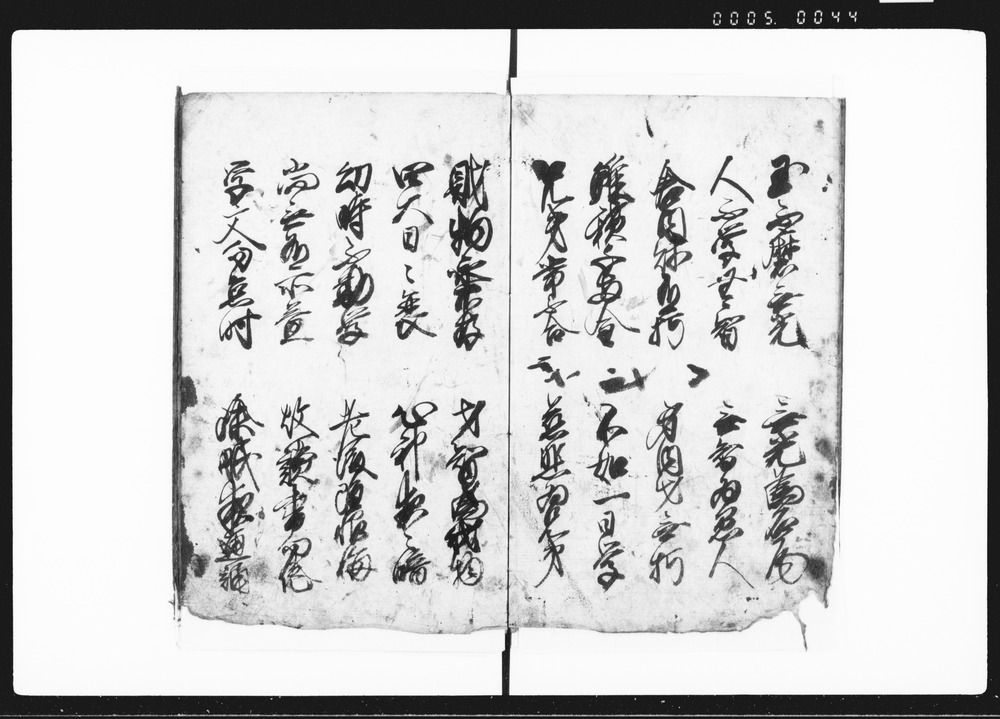 0005. 0044
玉不磨無光 無光為石瓦
人不学無智 無智為愚人
倉内財有朽 身内才無朽
雖積千両金 不如一日学
兄弟常不合 慈悲為兄弟
財物永不存 才智為財物
四大日々衰 心神夜々暗
幼時不勤学 老後雖恨悔
尚無有所益 故読書勿倦
学文勿怠時 除眠夜通誦